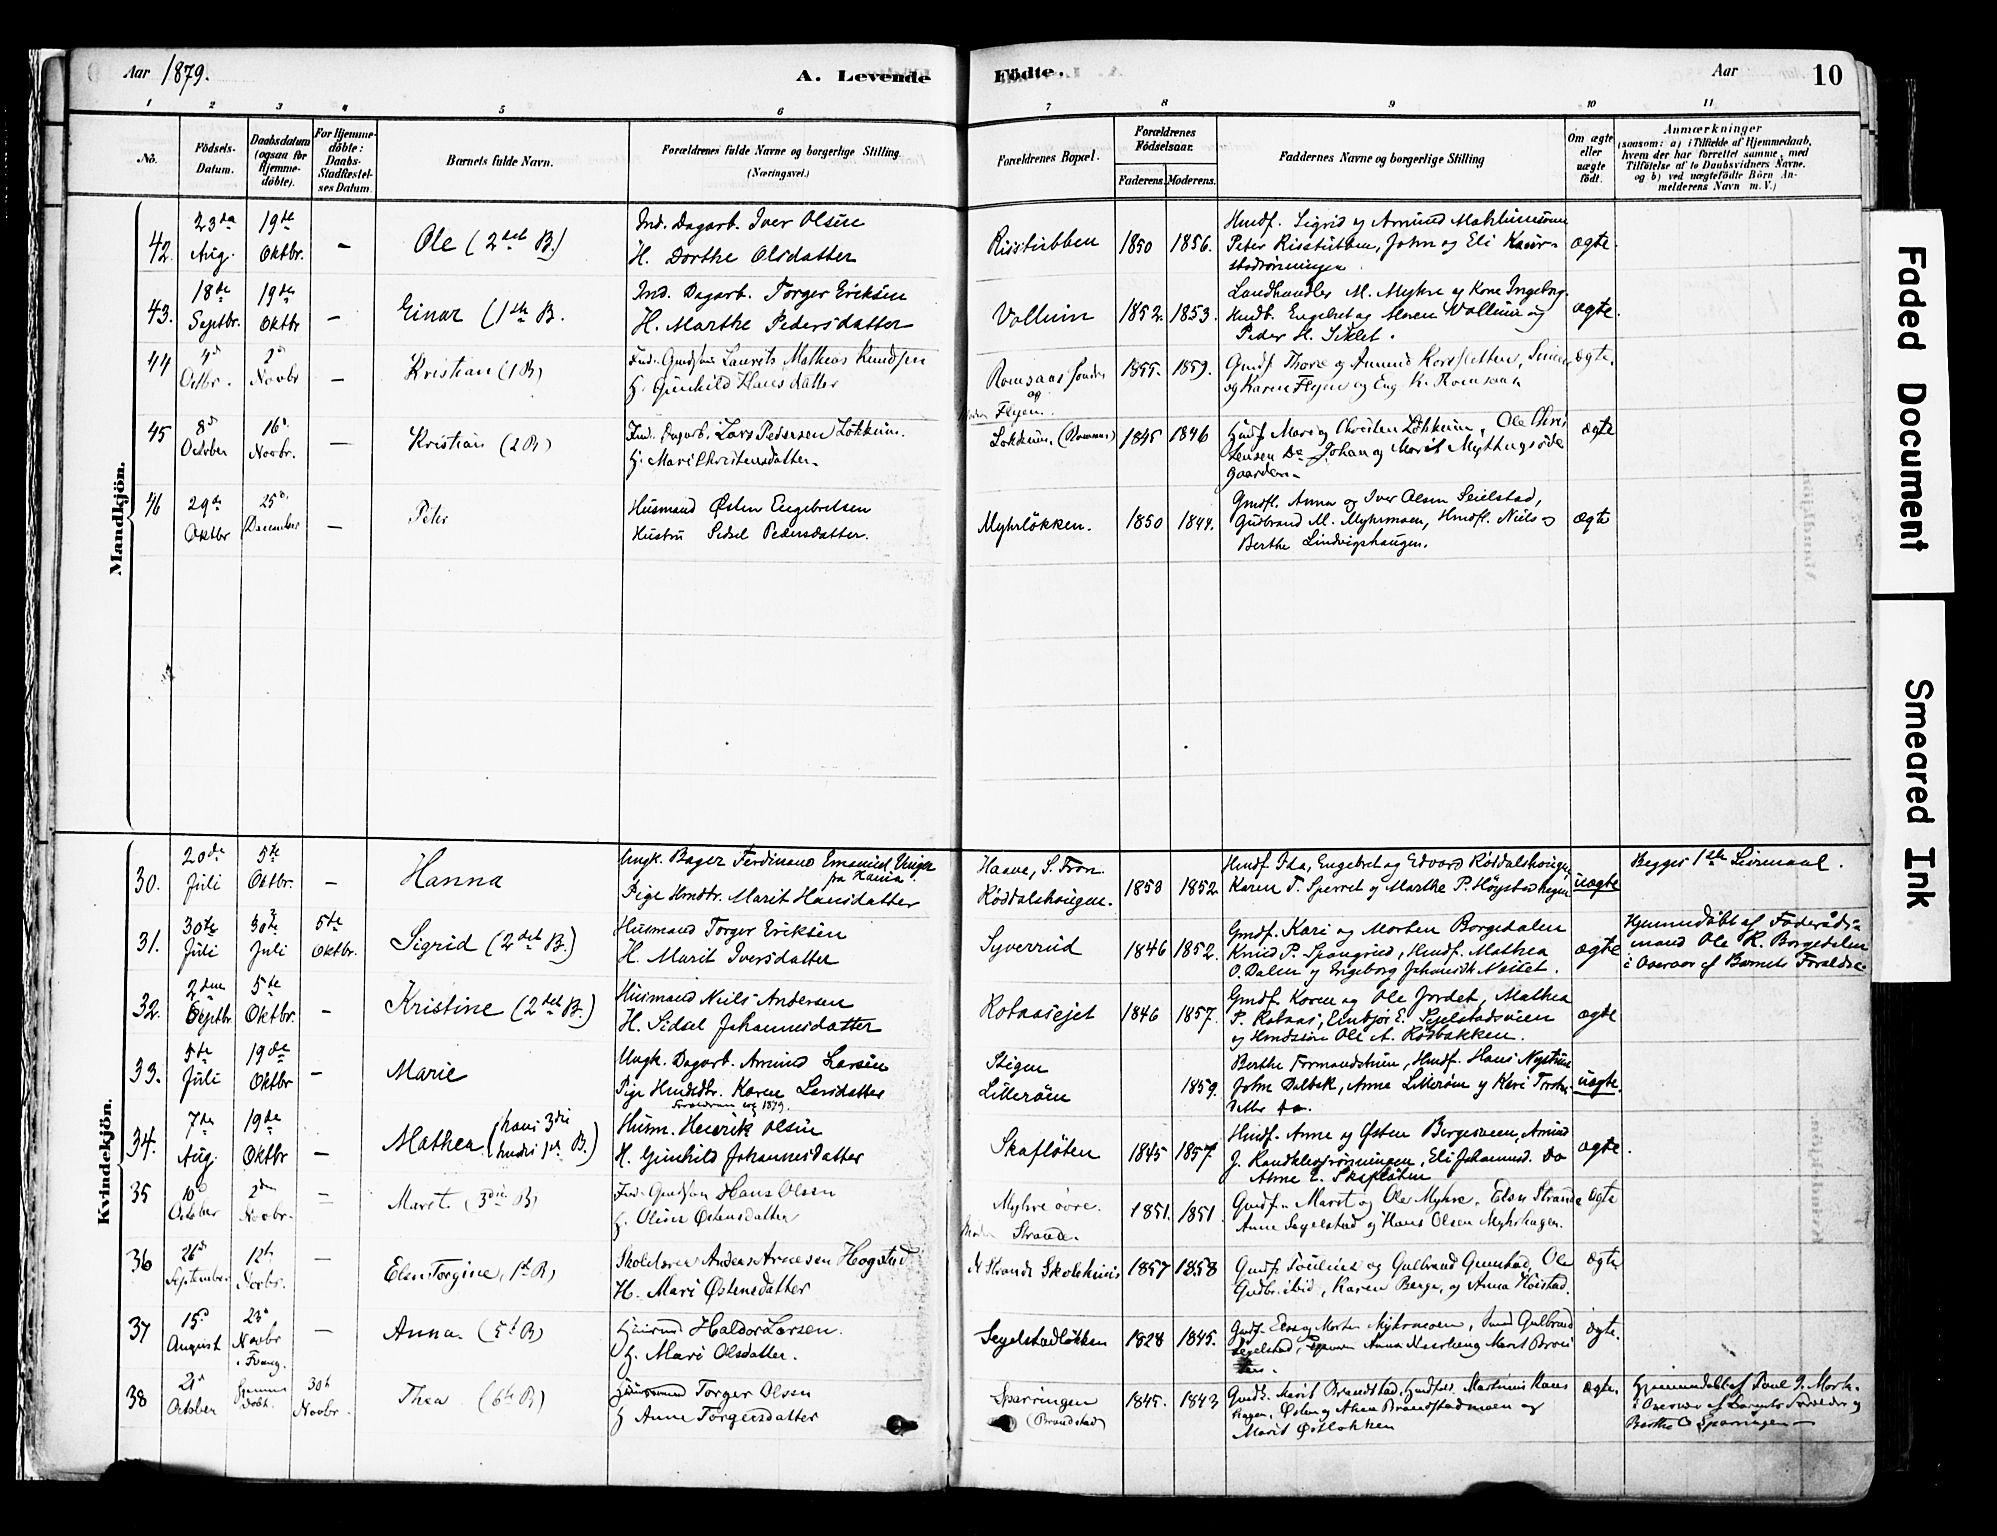 Aar 1879.
A. Levende
Födte.
Aar
10
1 2 3 4 5 6 7 8 9 10 11
No.
Födsels-Datum.
Daabsdatum (ogsaa for Hjemmedöbte).
For Hjemmedöbte: Daabs-Stadfæstelses Datum.
Barnets fulde Navn.
Forældrenes fulde Navne og borgerlige Stilling.
(Næringsvei.)
Forældrenes Bopæl.
Forældrenes Födselsaar.
Faderens.
Moderens.
Faddernes Navne og borgerlige Stilling
Om ægte eller uægte födt.
Anmærkninger
(saasom: a) i Tilfælde af Hjemmedaab,
hvem der har forrettet samme, med
Tilföielse af to Daabsvidners Navne.
og b) ved uægtefödte Börn Anmelderens Navn m. V.)
Mandkjön.
42. 23de Aug. 19de Oktbr. – Ole (2det B.)
Ind. Dagarb. Iver Olsen
H. Dorthe Olsdatter
Risstubben 1850 1856.
Hmdf. Sigrid og Amund
Peter Risstubben, John og Eli
ægte.
43. 18de Septbr. 19de Oktbr – Einar (1ste B.
Ind. Dagarb. Torger Eriksen
H. Marthe Pedersdatter
Vollum 1852. 1853.
Landhandler M. Myhre og Kone Ingeborg.
Hmdb. Engebret og Maren Vollum og
Peder H. Siklet.
ægte.
44 4d Octbr. 2d Novbr – Kristian (1 B)
Ind. Gmdsøn Laurits Mathias Knudsen
H. Gunhild Hansdatter
Romsaas søndre og Flyen. 1855. 1859.
Gmdf. Thore og Amund
og Karen Flyen og Eng. K. Romsaas
ægte.
45 8d October 16d Novbr. – Kristian (2 B)
Ind. Dagarb. Lars Pedersen Løkkum.
H. Mari Christensdatter
Løkkum. (Romsaas) 1845 1846
Hmdf. Mari og Christen Løkkum, Ole Christensen Do Johan og Marit
ægte
46 29de Oktbr 25d December – Peter
Husmand Østen Engebretsen
Hustru Sidsel Pedersdatter.
Myhrløkken. 1850 1849.
Gmdfl. Anna og Iver Olsen Seielstad,
Gudbrand M. Myhrmoen, Hmdfl. Niels og
Berthe Lindvigshaugen.
ægte
Kvindekjön.
30. 20de Juli 5te Oktbr. – Hanna
Ungk. Bager Ferdinand Emanuel Unger
fra Hamar.
Pige Hmdtr. Marit Hansdatter
Haave, S. Fron.
Røddalshougen. 1853 1852
Hmdf. Ida, Engebret og Edvard Røddalshougen,
Karen T. Sperret og Marthe P.
uægte
Begges 1ste Leiermaal.
31. 30te Juli 30te Juli 5te Oktbr. Sigrid (2det B.)
Husmand Torger Eriksen
H. Marit Iversdatter
Syverrud 1846 1852.
Gmdf. Kari og Morten Borgedalen
Knud P. Spangrud, Hmdf. Mathea
O. Dalen og Ingeborg
ægte
Hjemmedøbt af Føderaads-
mand Ole K. Borgedalen
i Overvær af Barnets Forældre.
32. 2den Septbr. 5te Oktbr. – Kristine (2det B.)
Husmand Niels Andersen
H. Sidsel Johannesdatter
Rolaasejet 1846 1857.
Gmdf. Karen og Ole Jordet, Mathea
P. Rolaas, Embjør E. Sejelstadsveen
og Hmdsøn Ole A. Rødbakken.
ægte
33. 5te Juli 19de Oktbr – Marie
Ungk. Dagarb. Amund Larsen
Pige Husmdtr. Karen Larsdatter
Stigen
Lillerøen 1859.
Berthe Formandstuen, Hmdf. Hans Nystuen
John Dalbak, Anne Lillerøen og Kari
datter Do.
uægte
34. 7de Aug. 19de Oktbr – Mathea (hans 3die hendes 1ste B.)
Husm. Henrik Olsen
H. Gunhild Johannesdatter
Skafløten 1845 1857.
Hmdf. Anne og Østen Bergesveen, Amund
Anne E. Skafløten
ægte.
35 10d October 2den Novbr. – Marit (3die B)
Ind. Gmdsøn Hans Olsen
H. Oline Østensdatter
Myhre øvre. Strande. 1851. 1851.
Gmdf. Marit og Ole Myhre. Elen Strande
Anne Segelstad og Hans Olsen Myhrhagen.
ægte
36 26d September 12te Novbr. – Elen Torgine, 1ste B)
Skolelærer Anders Arnesen Hogstad
H. Mari Østensdatter
Strande Skolehuus 1857 1858
Gmdf. og Gulbrand Grimstad, Ole
Gudbr. ibid, Karen Berge, og Anna Hoistad.
ægte
37 15d August 23d Novbr – Anna. (5t B)
Husmd Haldor Larsen.
H. Mari Olsdatter.
Segelstadløkken 1828 1845.
Gmdf. Else og Morten Myhrmoen, Gulbrand
Segelstad, Anna og Marit
ægte.
38 21d October Hjemmedøbt. 30te Novbr. Thea (6te B)
Husmand Torger Olsen
H Anne Torgersdatter
Sparringen (Brandstad) 1845. 1843
Gmdf. Marit Brandstad, Hmdfolk. Martinus
Østen og Anne Brandstadmoen og
Marit Østløkken
ægte.
Hjemmedøbt af Poul J. Mork
i Overvær af Barnets Forældre og
Berthe O Sparringen –
Faded Document
Smeared Ink